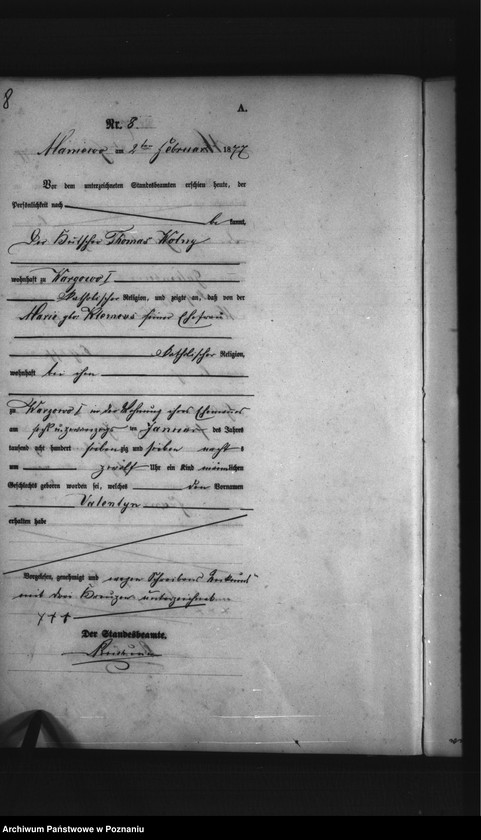 8
A.
Nr. 8.
am 2ten Februar 1877
Vor dem unterzeichneten Standesbeamten erschien heute, der
Persönlichkeit nach
be kannt,
Der Kutscher Thomas Wolny
wohnhaft zu Wargowo I
katholischer Religion, und zeigte an, daß von der
Marie geb. seiner Ehefrau
katholischer Religion,
wohnhaft bei ihm
zu Wargowo I in der Wohnung ihres Ehemannes
am sechsundzwanzigsten Januar des Jahres
tausend acht hundert siebenzig und sieben nachts
um zwölf Uhr ein Kind männlichen
Geschlechts geboren worden sei, welches den Vornamen
Valentyn
erhalten habe
Vorgelesen, genehmigt und wegen Schreibens
mit drei Kreuzen unterzeichnet
+++
Der Standesbeamte.
Archiwum Państwowe w Poznaniu